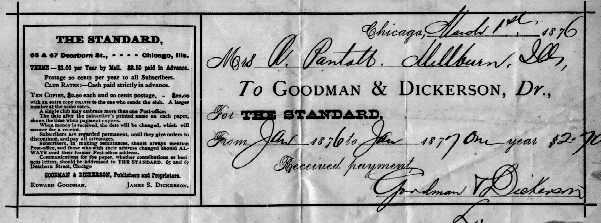 THE STANDARD,
65 & 67 Dearborn St., - - - - Chicago, Ills.
TERMS—$3.00 per Year by Mail. $2.50 paid in Advance.
Postage 20 cents per year to all Subscribers.
CLUB RATES:—Cash paid strictly in advance.
with an extra copy GRATIS to the one who sends the club. A larger
number at the same rates.
A single club may embrace more than one Post-office.
The date after the subscriber's printed name on each paper,
shows the time when payment expires.
When money is received, the date will be changed, which will
answer for a receipt.
Subscribers are regarded permanent, until they give orders to
discontinue, and pay all arrearages.
Subscribers, in making remittances, should always mention
Post-office, and those who wish their address changed should AL-
WAYS send their former Post-office address.
Communications for the paper, whether contributions or busi-
ness letters, should be addressed to THE STANDARD, 65 and 67
Dearborn Street, Chicago
GOODMAN & DICKERSON, Publishers and Proprietors.
EDWARD GOODMAN. JAMES S. DICKERSON.
Chicago, March 1st 1876
Mrs Pantall Millburn, Ills,
To GOODMAN & DICKERSON, Dr.,
For THE STANDARD,
From Jan 1876 to Jan 1877 One year $2.70
Received payment,
Goodman & Dickerson